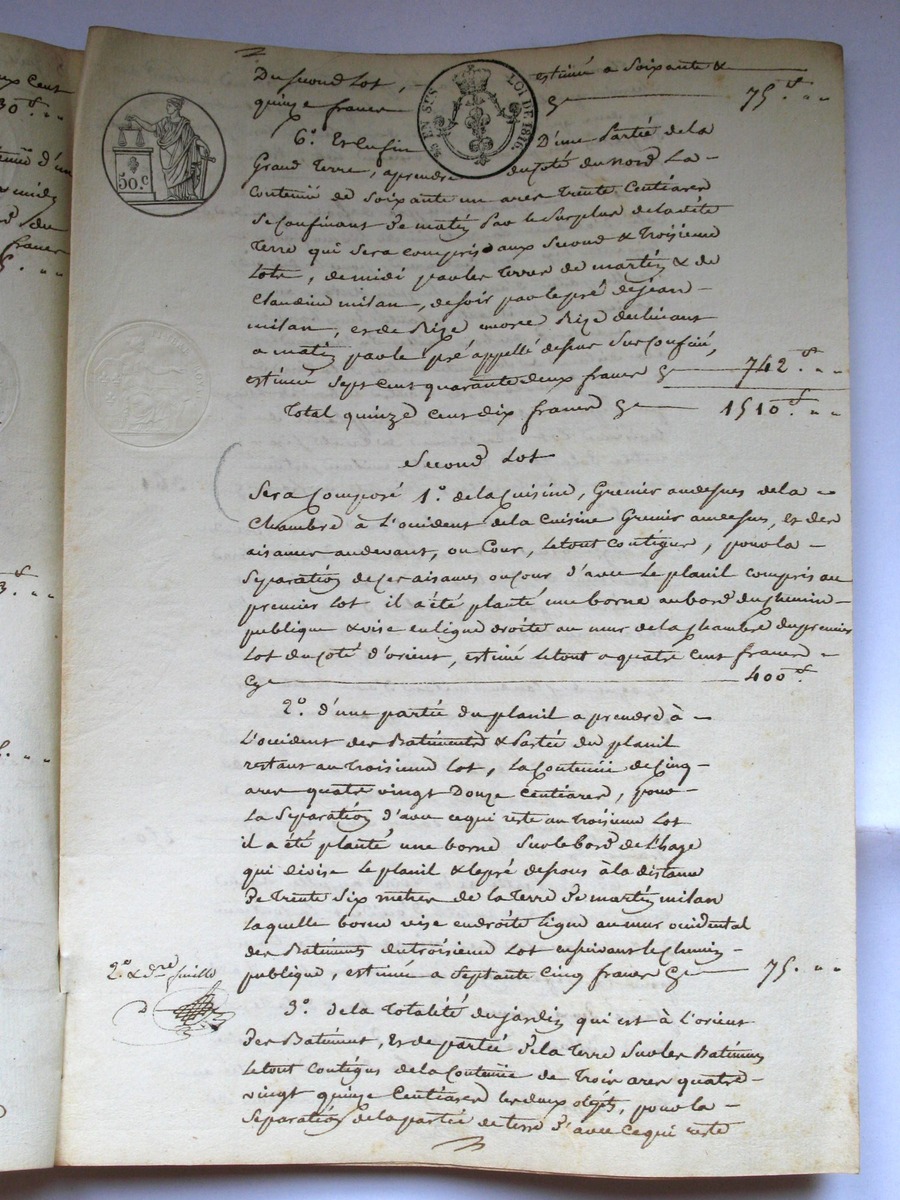 Du second Lot, estimé a Soixante &
quinze francs 75.f " "
50.c
25 EN SUS LOI DE 1816
6.o Et Enfin D'une Partie de la
Grand Terre, a prendre du coté du Nord La
Contenue de Soixante un ares Trente Centiares
Se Confinant De matin Par le Surplus de la dite
Terre qui Sera compris aux Second & Troisieme
Lots, de midi par les Terres de martin & de
Claudine milan, de soir par le pré de jean
milan, et de Bize encore Bize declinant
a matin par le pré appellé dessus Sus Confiné,
estimée Sept Cent quarante deux francs 742.f " "
Total quinze cent dix francs 1510.f " "
Second Lot
Sera Composé 1.o de la Cuisine, Grenier au dessus de la
Chambre à L'occident de la Cuisine Grenier au dessus, et des
aisances au devant, ou Cour, Le tout Contigue, pour la
Séparation de ces aisances ou cour d'avec Le planil compris au
premier Lot il a été planté une borne au bord du Chemin
publique & vise en ligne droite au mur de la Chambre du premier
Lot du coté d'orient, estimé Le tout a quatre Cent francs
400.f
2.o d'une partie du planil a prendre à
L'occident des Batiments & Partie du planil
restant au Troisieme Lot, La Contenue de Cinq
ares quatre vingt Douze Centiares, pour
La Séparation d'avec ce qui reste au Troisieme Lot
il a été planté une borne Sur le bord de L'hage
qui divise Le planil & le pré dessous à la distance
De Trente Six metres de la Terre De martin milan
Laquelle borne vise en droite Ligne au mur occidental
des Batiments du troisieme Lot en suivant le Chemin
publique, estimée a Septante Cinq francs 75. " "
2.e & d.re feuille
3.o de la Totalité du jardin qui est à L'orient
Des Batiments, Et de partie De la Terre Sur les Batiments
Le tout Contigus de la Contenue de Trois ares quatre
vingt quinze Centiares les deux objets, pour la
Séparation de la partie de terre D'avec ce qui reste